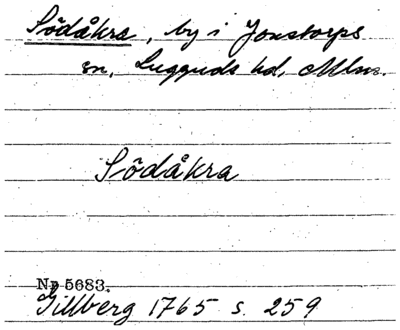 Södåkra, by i Jonstorps
sn, Luggude hd, Mlm.
Södåkra
Nr 5683.
Gillberg 1765 s. 259